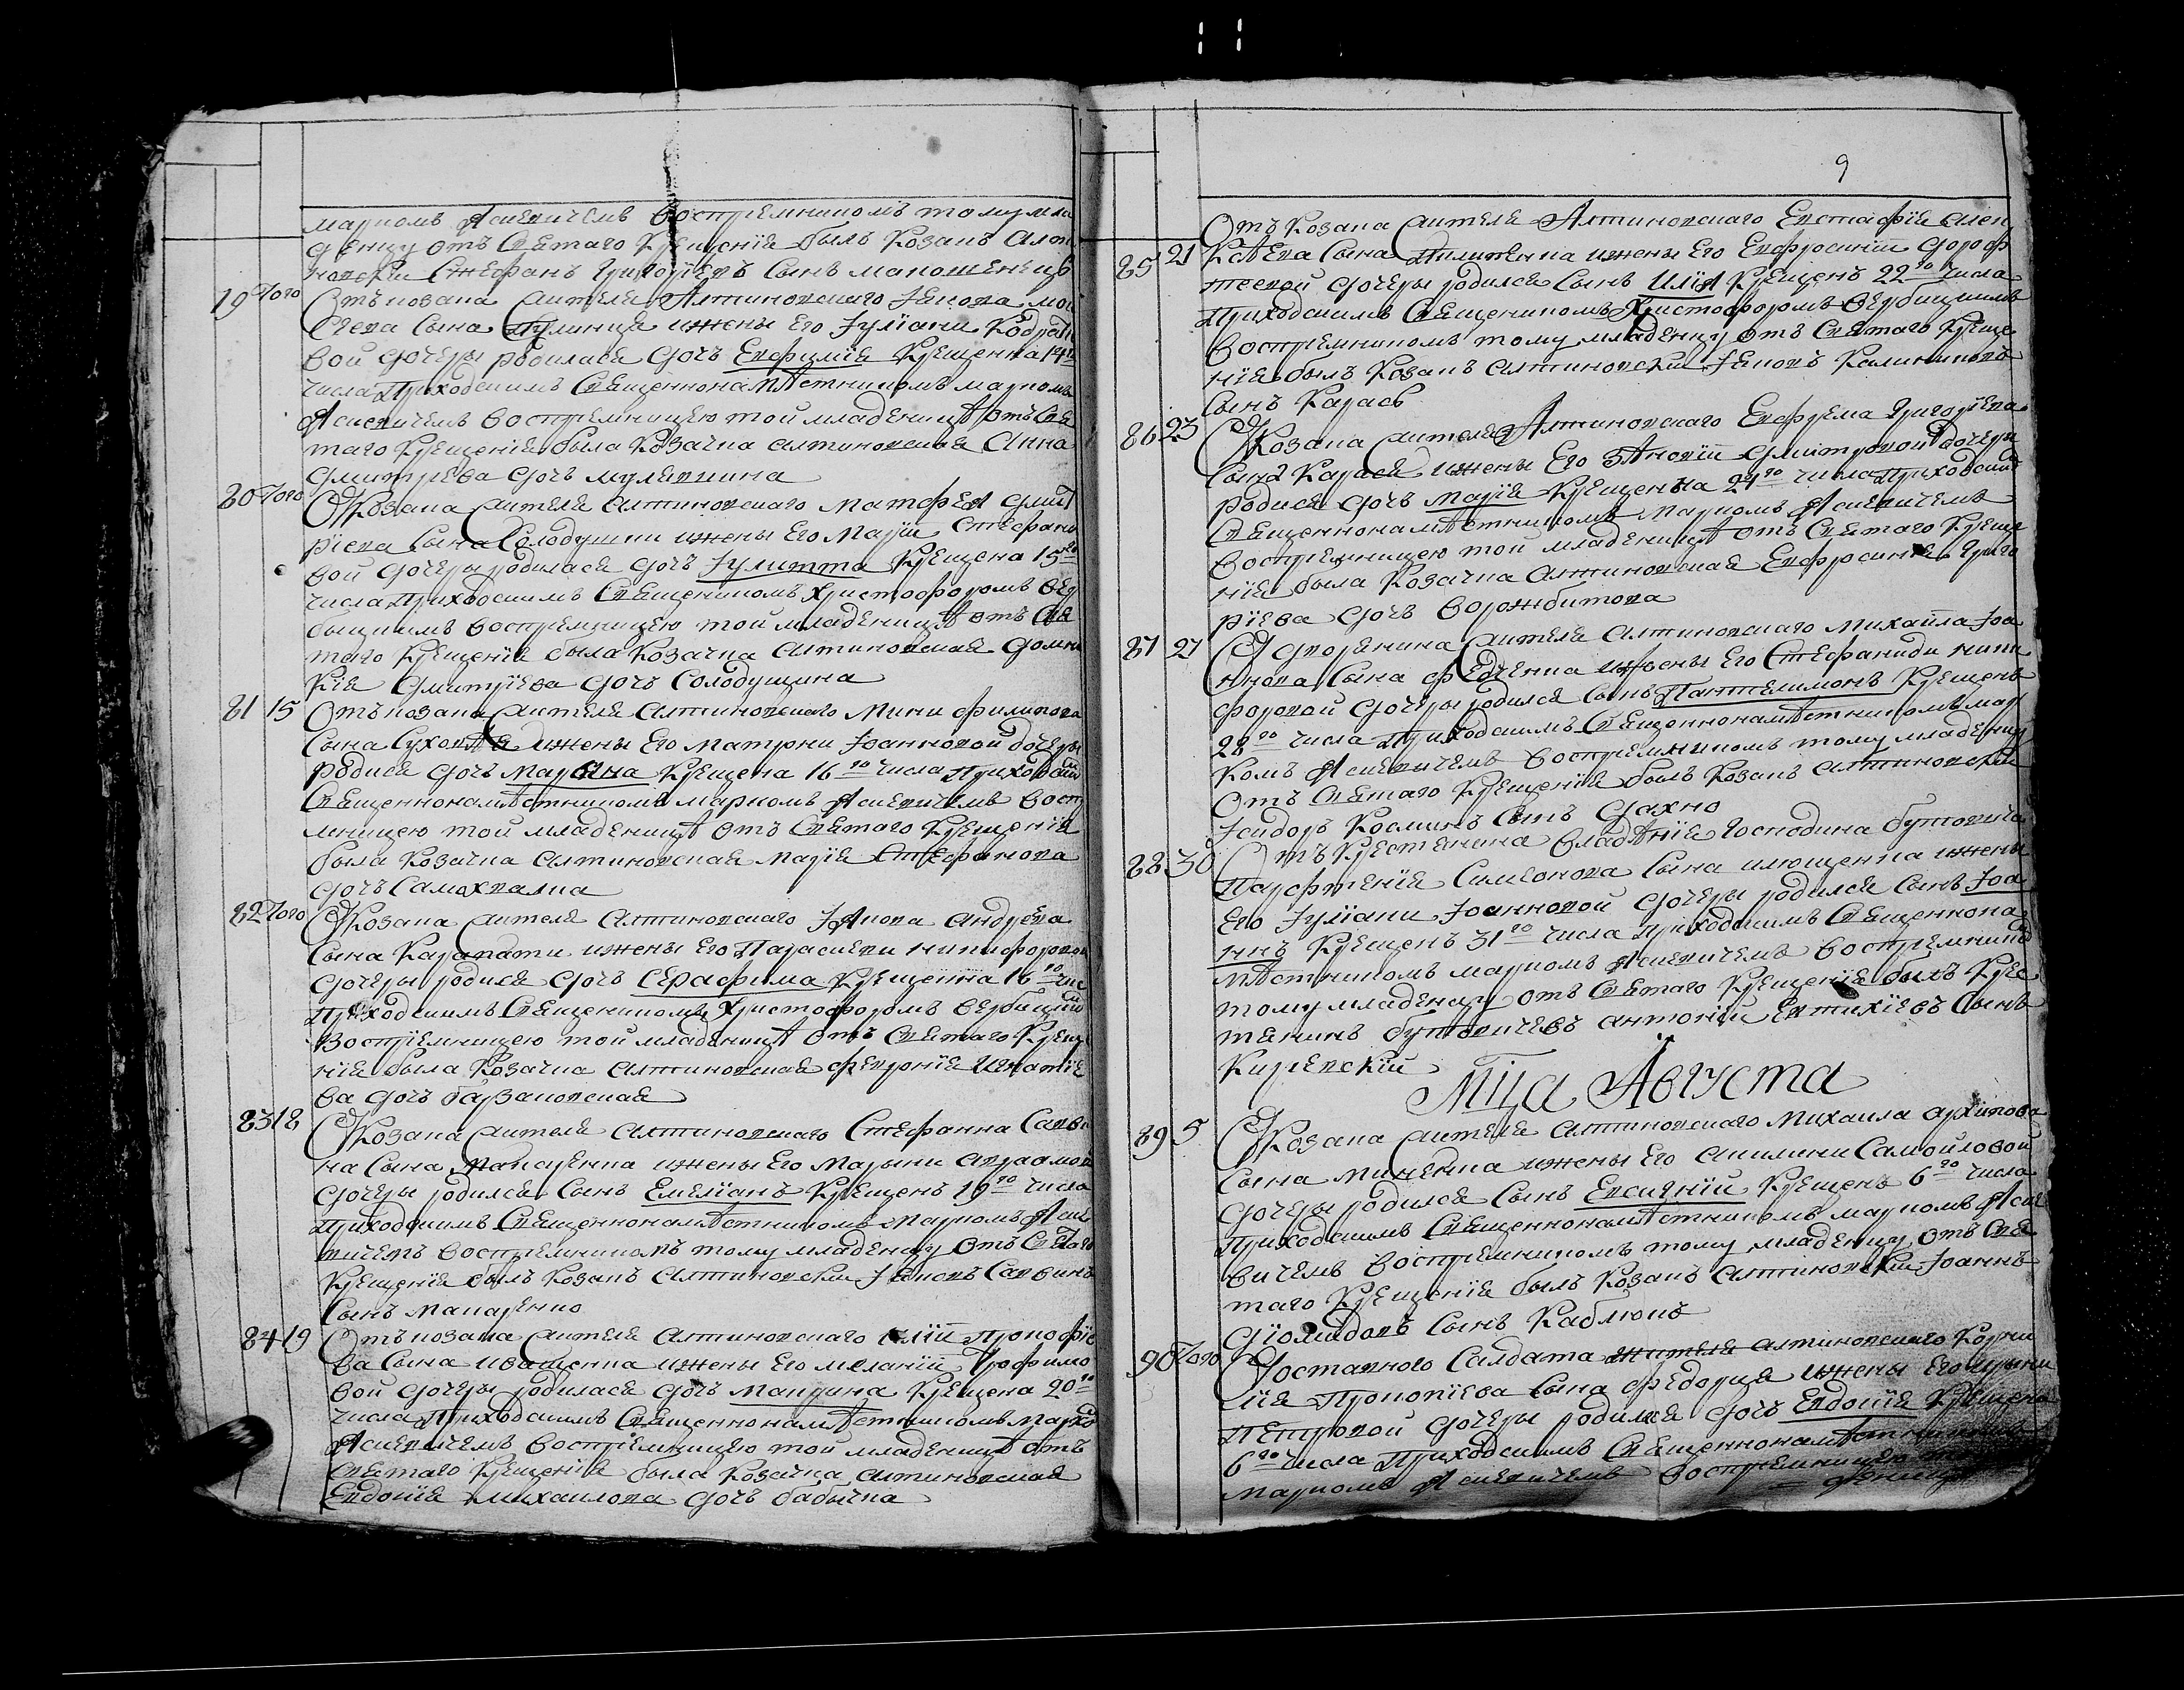 маркомъ Яснвичемъ восприемникомъ тому мла
денцу отъ Святаго крещенїя былъ козакъ алти
новски Стефанъ григорїевъ сынъ макошенецъ
19 Того Отъ козака жителя Алтиновского Іякова мои
сеева сына жены его Іулїани Кодрати
вой дочеры родилася дочь Евфимїя крещенна 14го
числа приходскимъ священнонамѣстникомъ маркомъ
восприемницею той младеницѣ отъ свя
таго крещенїя была козачка алтиновская Анна
Дмитриева дочь мулявчина
80 Того От козака жителя алтиновского матфея дмит
рїева сына Солодушки жены его Марїи Стефано
вой дочеры родилася дочь Іулитта крещена 15го
числа приходскимъ священникомъ христофоромъ вер
бицкимъ восприемницею той младеницѣ отъ свя
таго крещенїя была козачка алтиновская домни
кїя дмитрїева дочь Солодущина
81 15 Отъ козака жителя алтиновского Мини филипова
сына жены его матрни Іоанновой дочеры
родися дочь Марина крещена 16го числа приходским
священнонамѣстникомъ маркомъ воспр
мницею той младеницѣ отъ святаго крещенїя
была козачка алтиновская марїя Стефанова
дочь Самохвалка
82 Того От козака жителя алтиновского Іякова андреева
сына жены его Параскеви никифоровой
дочеры родися дочь Серафима крещенна 16го чис
приходскимъ священникомъ христофоромъ вербицким
восприемницею той младеницѣ отъ святаго креще
нїя была козачка алтиновская февронїя Игнатїе
ва дочь барзаковская
83 18 От козака жителя алтиновского Стефанна Савви
на сына макаренка жены его Марыни авраамов
дочеры родился сынъ Емелїанъ крещенъ 19го числа
приходскимъ священнонамѣстникомъ маркомъ
вичемъ восприемникомъ тому младенцу отъ святаго
крещенїя былъ козакъ алтиновски Іяковъ Саввинъ
сынъ макаренко
84 19 Отъ козака жителя алтиновского илїи прокофїе
ва сына иващенка жены его меланїи трофимо
вой дочеры родилася дочь Маврина крещена 20го
числа приходскимъ священнонамѣстникомъ марко
восприемницею той младеницѣ отъ
святаго крещенїя была козачка алтиновская
Евдокїя михаилова дочь бабычка
9
Отъ козака жителя Алтиновского Евстафїя алек
85 21 сѣева сына жены его Евфросинїи дороф
теевой дочеры родился сынъ Илїя крещенъ 22го числа
приходскимъ священникомъ Христофоромъ вербицкимъ
восприемникомъ тому младенцу отъ святаго креще
нїя былъ козакъ алтиновски Іяковъ Калиниковъ
сынъ Карась
86 23 От козака жителя Алтиновского Евфрема григорїева
сына Карася жены его Зѣновїи дмитровой дочери
родися дочь марїя крещенна 24го числа приходским
священнонамѣстникомъ маркомъ
восприемницею той младеницѣ отъ святаго креще
нїя была козачка алтиновская Евфросинїя григо
рїева дочь ворожбитова
87 27 От дворенина жителя алтиновского михаила Іоа
ннова сына федченка жены его Стефаниди ники
форовой дочеры родился сынъ Пантелимонъ крещенъ
28го числа приходскимъ священнонамѣстникомъ мар
комъ восприемникомъ тому младенцу
отъ святаго крещенїя былъ козакъ алтиновски
Ісидоръ Косминъ сынъ дахно
88 30 Отъ крестянена владѣнїя господина бутовича
Парфтенїя Симеонова сына илющенка жены
его Іулїани Іоанновой дочеры родился сынъ Іоа
ннъ крещенъ 31го числа приходскимъ священнона
мѣстникомъ маркомъ восприемником
тому младенцу отъ святаго крещенїя былъ крес
тянинъ бутовичевъ антонїи Евтихїевъ сынъ
Киревскїи
Мца Августа
89 5 От козака жителя алтиновского михаила архипова
сына миненка жены его акилини Самойловой
дочеры родился сынъ Евсигнїи крещенъ 6го числа
приходскимъ священнонамѣстникомъ маркомъ
вичемъ восприемникомъ тому младенцу отъ свя
таго крещенїя былъ козакъ алтиновски Іоаннъ
дїомидовъ сынъ Каблюкъ
90 Того От оставного салдата жителя алтиновского Корни
лїя Прокопїева сына жены его ирини
петровой дочеры родилася дочь Евдокїя крещена
6го числа приходскимъ священнонамѣстникомъ
маркомъ восприемницею